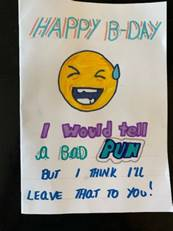 HAPPY B-DAY
I Would tell
a BaD PUN
BUT I THINK I'LL
LEAVE THAT TO YOU!